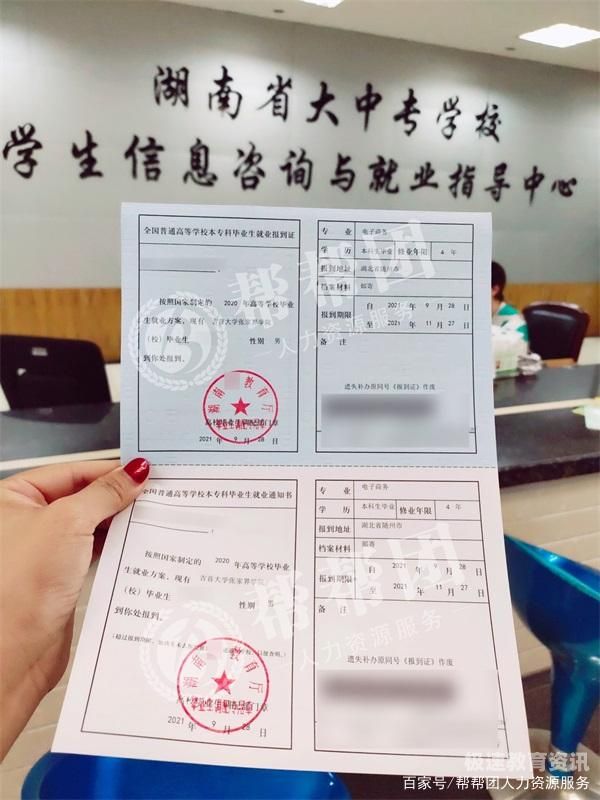 湖南省大中专学校
学生信息咨询与就业指导中心
全国普通高等学校本专科毕业生就业报到证
按照国家制定的 2020 年高等学校毕业
生就业方案,现有 吉首大学张家界学院
(校)毕业生 性别 男
到你处报到。
湖南 教育厅
2021 年 9 月 28 日
专 业 电子商务
学 历 本科生毕业 修业年限 4 年
报到地址 湖北省随州市
档案材料 邮寄
报到期限 自 2021 年 9 月 28 日
至 2021 年 11 月 27 日
备 注
遗失补办原同号《报到证》作废
全国普通高等学校本专科毕业生就业通知书
按照国家制定的 2020 年高等学校毕业
生就业方案,现有 吉首大学张家界学院
(校)毕业生 性别 男
到你处报到。
湖南 教育厅
2021 年 9 月 28 日
专 业 电子商务
学 历 本科生毕业 修业年限 4 年
报到地址 湖北省随州市
档案材料 邮寄
报到期限 自 2021 年 9 月 28 日
至 2021 年 11 月 27 日
备 注
遗失补办原同号《报到证》作废
帮帮团
人力资源服务
帮帮团
人力资源服务
极速教育资讯
百家号/帮帮团人力资源服务